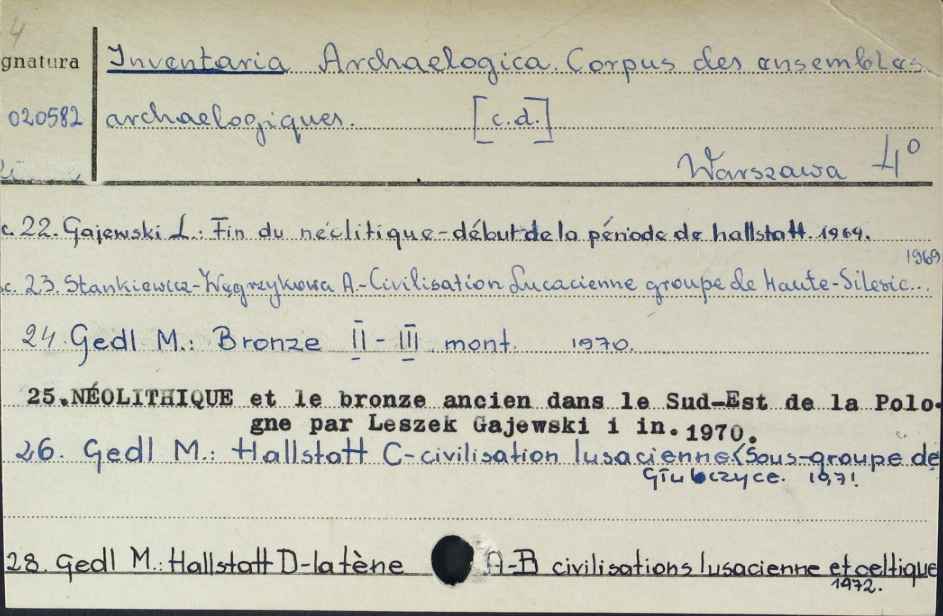 4
gnatura Inventaria Archaelogica. Corpus des ensembles
020582 archaelogiques. [c.d.]
Warszawa 4°
c. 22. Gajewski L.: Fin du néolitique-début de la période de hallstatt. 1969.
1969
sc. 23. Stankiewicz-Węgrzykowa A.-Civilisation Lucacienne groupe de Haute-Silesie...
24. Gedl M.: Bronze II - III mont. 1970.
25. NÉOLITHIQUE et le bronze ancien dans le Sud-Est de la Polo-
gne par Leszek Gajewski i in. 1970.
26. Gedl M.: Hallstatt C-civilisation lusacienne (Sous-groupe de
Głubczyce. 1971.
28. Gedl M.: Hallstatt D-latène A-B civilisations lusacienne et celtique
1972.